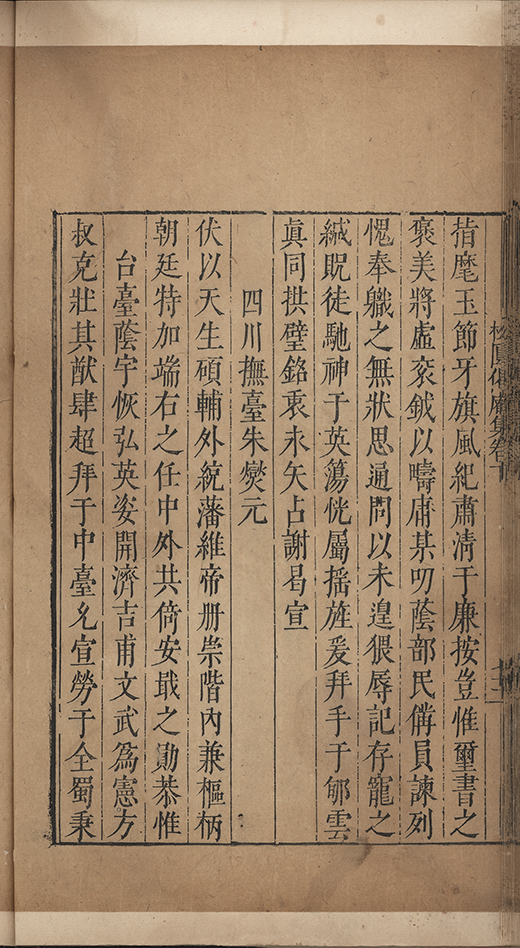 指麾玉節牙旗風紀肅清于廉按豈惟璽書之
褒美將虛衮鉞以疇庸某叨蔭部民備員諫列
愧奉職之無狀思通問以未遑猥辱記存寵之
緘貺徒馳神于英蕩恍屬摇旌爰拜手于郇雲
真同拱璧銘衷永矢占謝曷宣
四川撫臺朱燮元
伏以天生碩輔外統藩維帝册崇階內兼樞柄
朝廷特加端右之任中外共倚安戢之勛恭惟
台臺蔭宇恢弘英姿開濟吉甫文武爲憲方
叔克壯其猷肆超拜于中臺久宣勞于全蜀秉